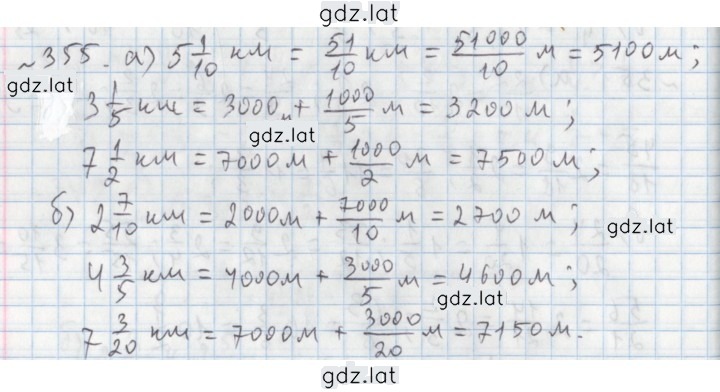 gdz.lat
№355. а) 5 1/10 км = 51/10 км = 51000/10 м = 5100 м;
gdz.lat
3 1/5 км = 3000м + 1000/5 м = 3200 м;
gdz.lat
7 1/2 км = 7000м + 1000/2 м = 7500м;
б) 2 7/10 км = 2000м + 7000/10 м = 2700 м;
gdz.lat
gdz.lat
4 3/5 км = 4000м + 3000/5 м = 4600м;
gdz.lat
7 3/20 км = 7000м + 3000/20 м = 7150м.
gdz.lat